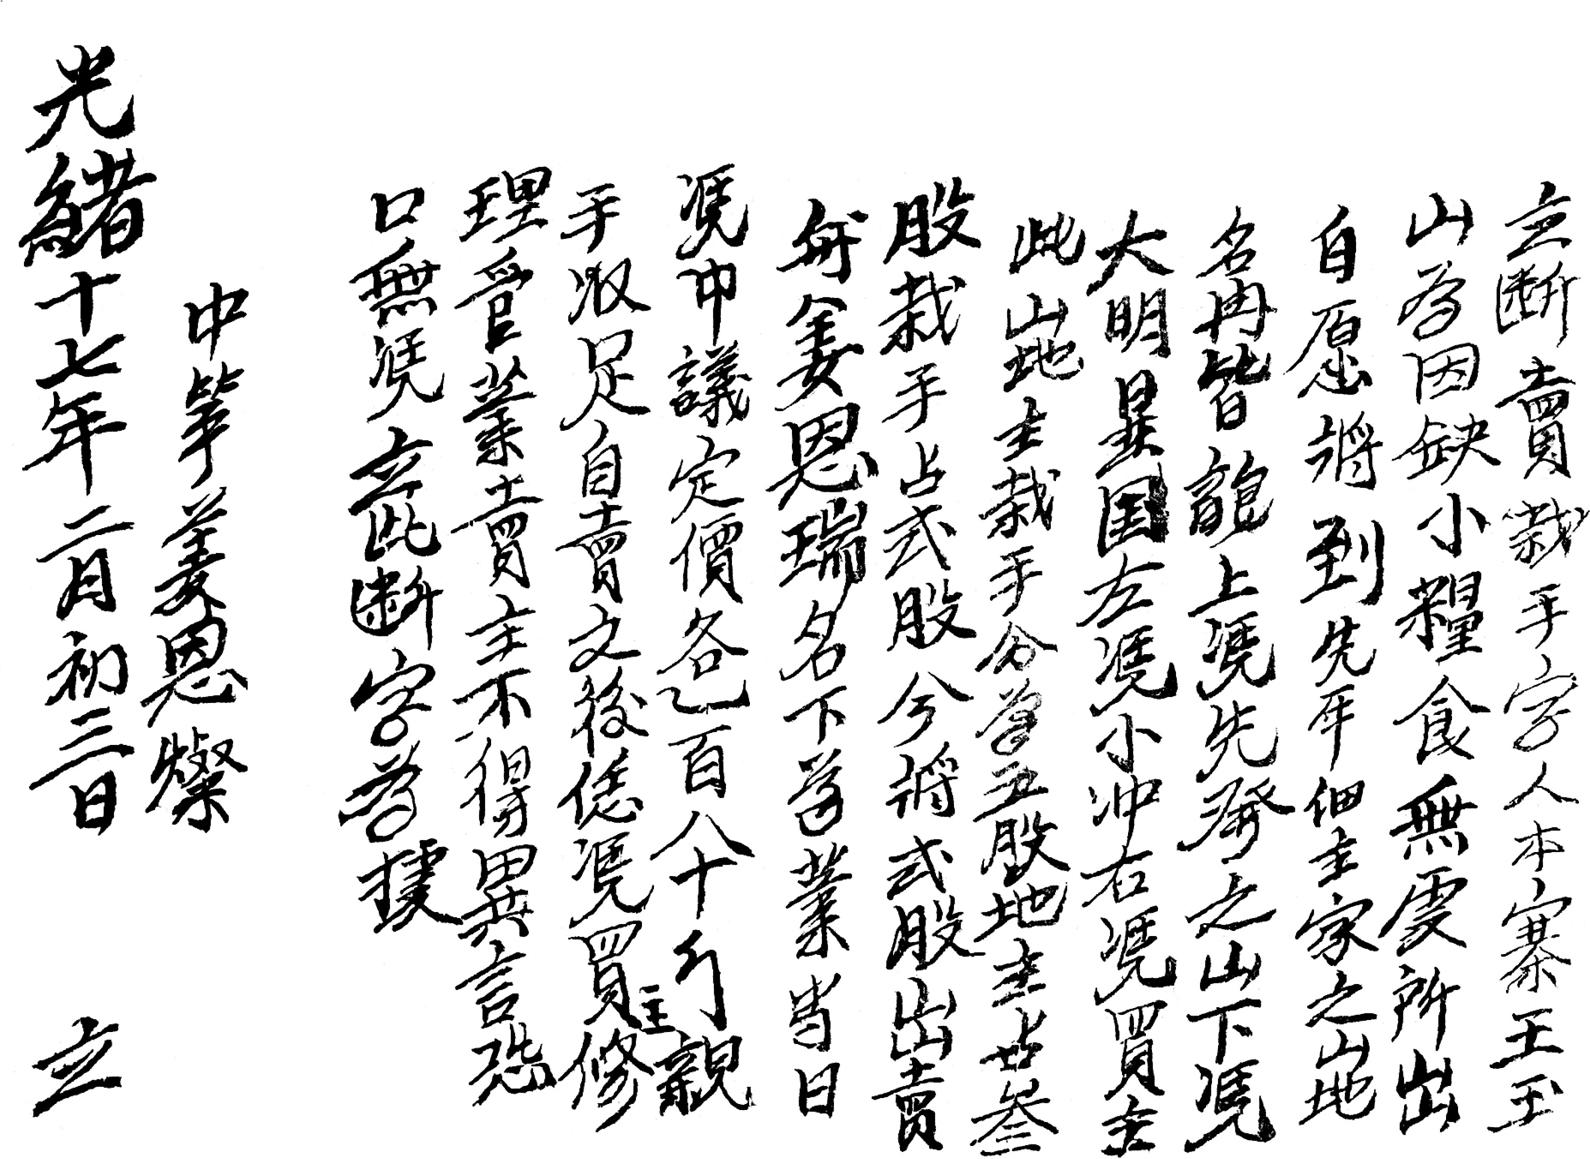 立断賣栽手字人本寨王玉
山為因缺小糧食無處所出
自愿將到先年佃主家之山地
名冉皆訛上凴先發之山下凴
大明昰国左凴小冲右凴買主
此山地主栽手分為五股地主占叁
股栽手占弍股今將弍股出賣
與姜恩瑞名下為業當日
凴中議定價各乙百八十彳親
手收足自賣之後恁凴買主修
理管業賣主不得異言恐
口無凴立此断字為據
中筆姜恩燦
光緒十七年二月初三日 立